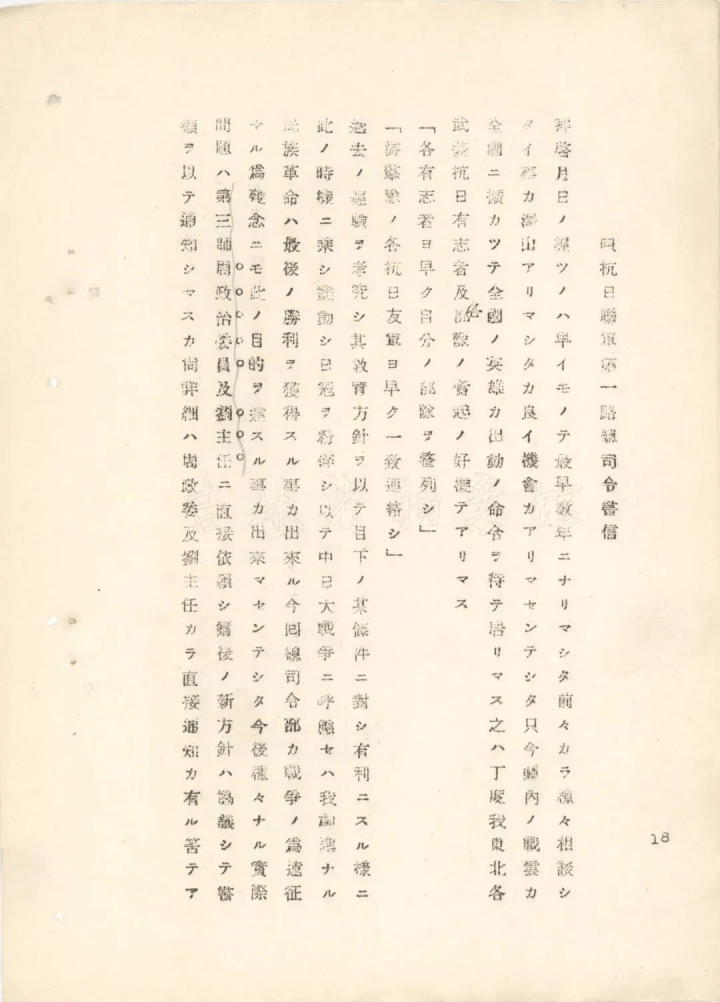 抗日聯軍第一路總司令書信
拜啓月日ノ經ツノハ早イモノテ最早數年ニナリマシタ前々カラ種々相談シ
タイ事カ澤山アリマシタカ良イ機會カアリマセンテシタ只今關內ノ戰雲カ
全國ニ擴カツテ全國ノ英雄カ出動ノ命令ヲ待テ居リマス之ハ丁度我東北各
武裝抗日有志者及部隊ノ奮起ノ好機テアリマス
「各有志者ヨ早ク自分ノ部隊ヲ整列シ」
「ノ各抗日友軍ヨ早ク一致連絡シ」
過去ノ經驗ヲ考究シ其敎育方針ヲ以テ目下ノ某條件ニ對シ有利ニスル樣ニ
此ノ時機ニ乘シ動シ日冠ヲ粉碎シ以テ中日大戰爭ニ呼應セハ我ナル
民族革命ハ最後ノ勝利ヲ獲得スル事カ出來ル今回總司令部カ戰爭ノ爲遠征
セル爲殘念ニモ此ノ目的ヲ達スル事カ出來マセンテシタ今後種々ナル實際
問題ハ第三師周政治委員及劉主任ニ直接依賴シ爾後ノ新方針ハ協議シテ書
類ヲ以テ通知シマスカ尙詳細ハ周政委及劉主任カラ直接通知カ有ル筈テア
18